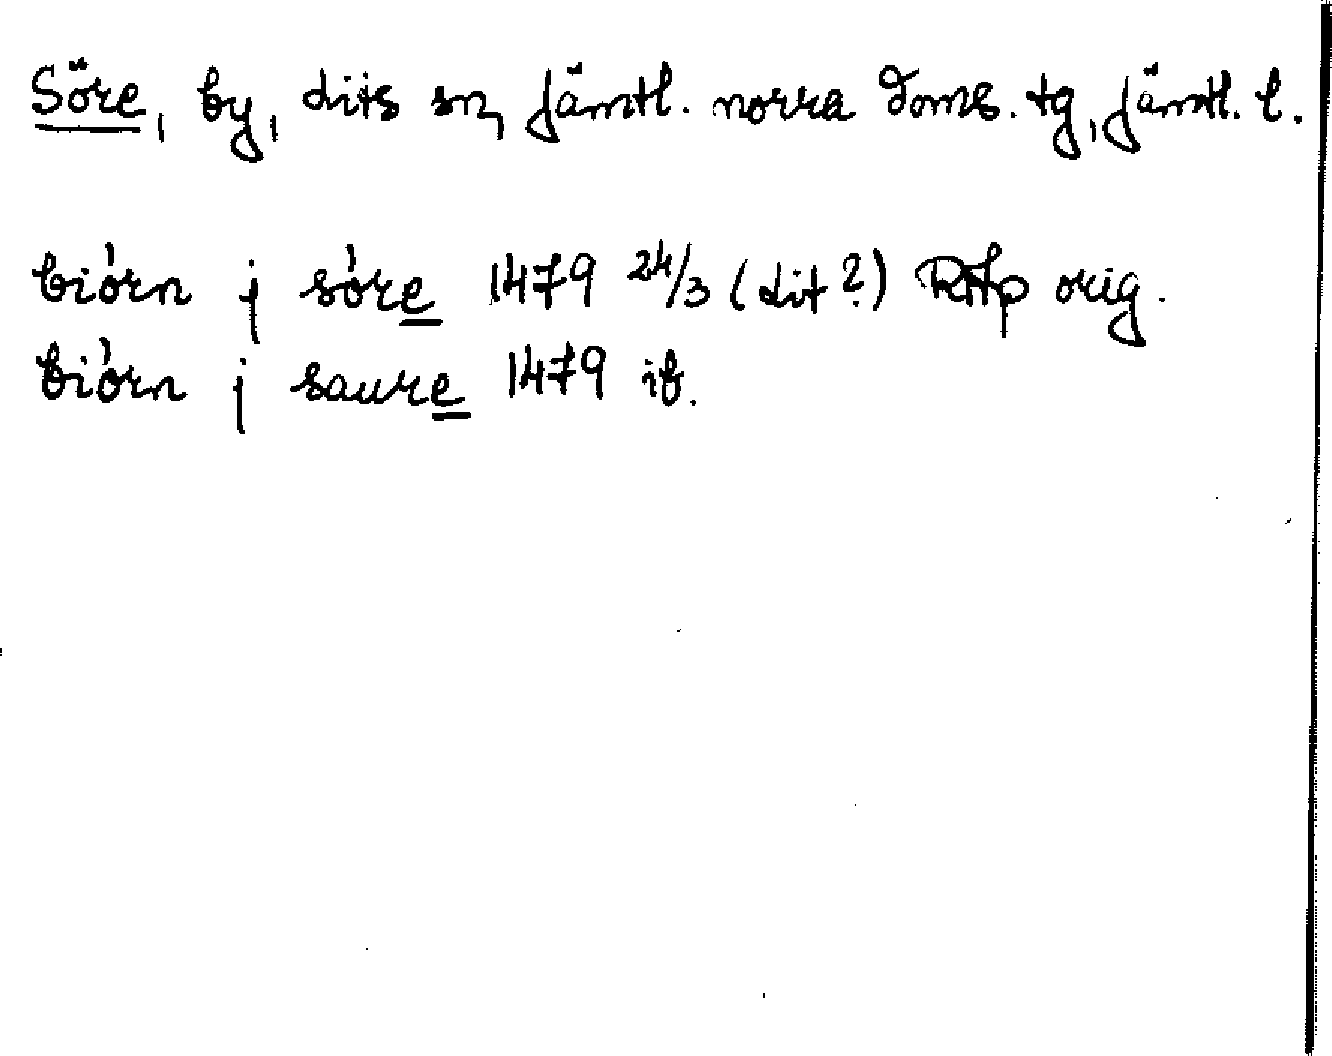 Söre, by, Lits sn, Jämtl. norra doms. tg, Jämtl. l.
biórn j sóre 1479 24/3 (Lit?) RAp orig.
biórn j saure 1479 ib.